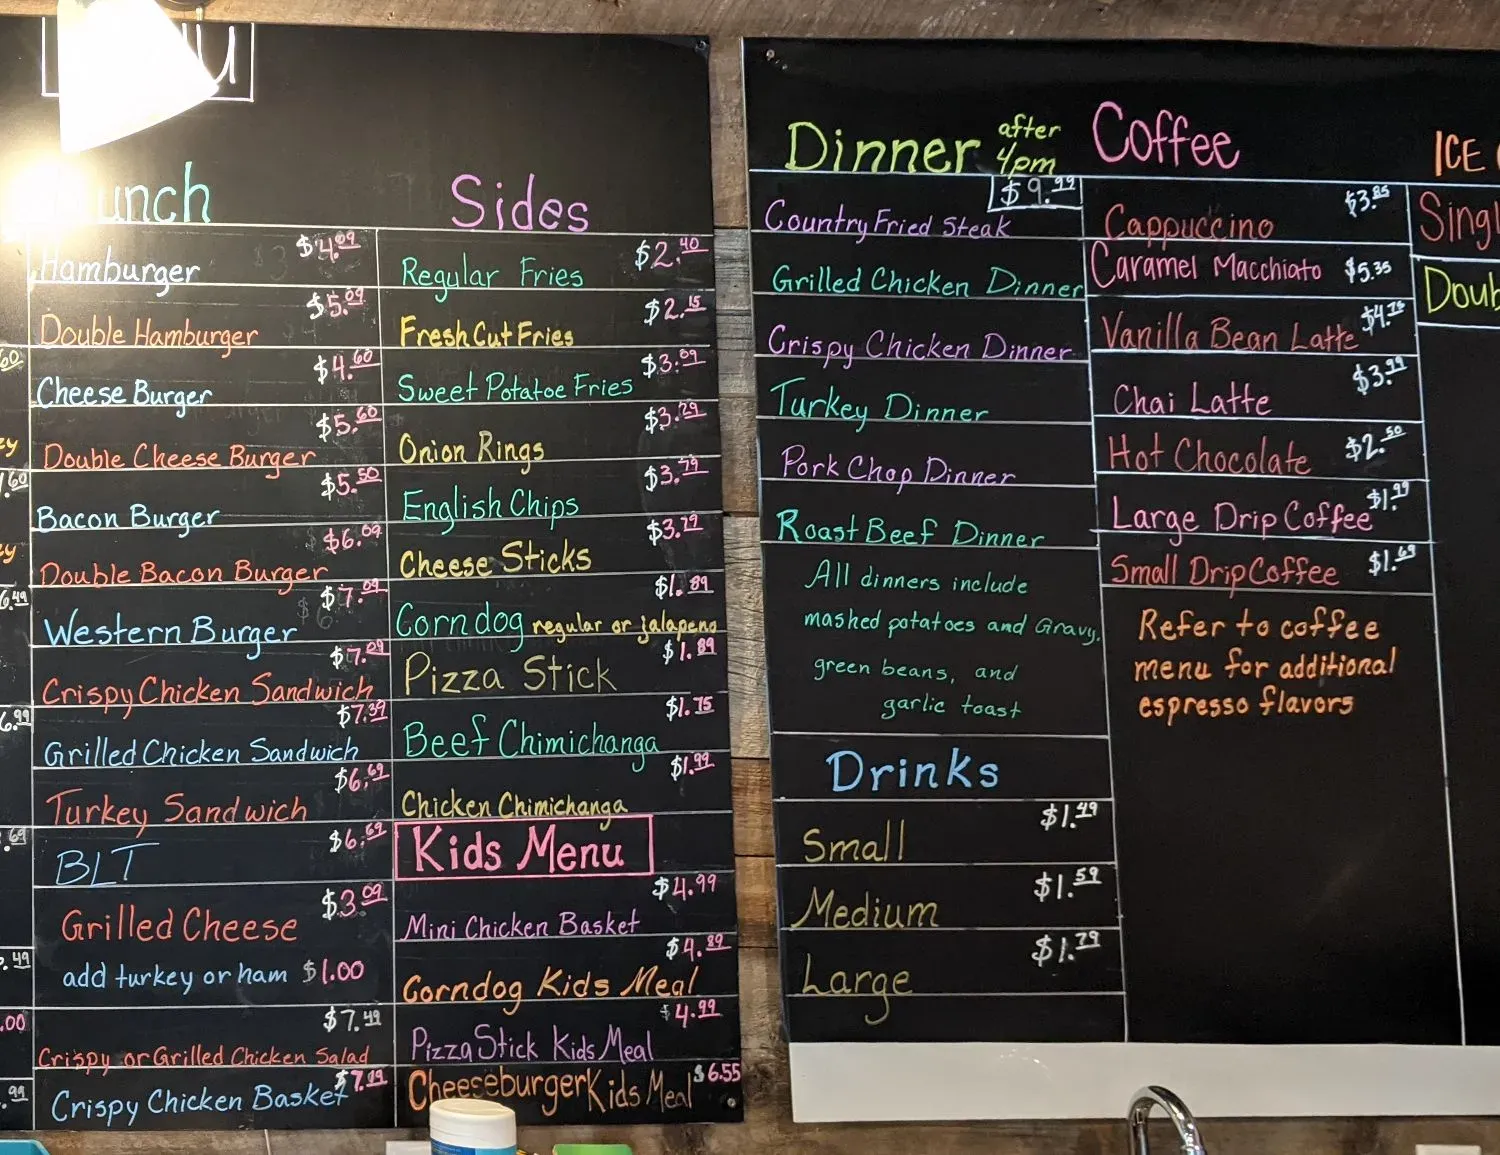 unch
$4.09
Hamburger
$5.09
Double Hamburger
$4.60
Cheese Burger
$5.60
Double Cheese Burger
$5.50
Bacon Burger
$6.09
Double Bacon Burger
$7.09
Western Burger
$7.09
Crispy Chicken Sandwich
$7.39
Grilled Chicken Sandwich
$6.69
Turkey Sandwich
$6.69
BLT
$3.09
Grilled Cheese
add turkey or ham $1.00
$7.49
Crispy or Grilled Chicken Salad
$7.19
Crispy Chicken Basket
Sides
$2.40
Regular Fries
$2.15
Fresh Cut Fries
$3.09
Sweet Potatoe Fries
$3.29
Onion Rings
$3.79
English Chips
$3.79
Cheese Sticks
$1.89
Corndog regular or jalapeno
$1.89
Pizza Stick
$1.75
Beef Chimichanga
$1.99
Chicken Chimichanga
Kids Menu
$4.99
Mini Chicken Basket
$4.89
Corndog Kids Meal
$4.99
Pizza Stick Kids Meal
$6.55
Cheeseburger Kids Meal
Dinner after
4pm
$9.99
Country Fried Steak
Grilled Chicken Dinner
Crispy Chicken Dinner
Turkey Dinner
Pork Chop Dinner
Roast Beef Dinner
All dinners include
mashed potatoes and Gravy,
green beans, and
garlic toast
Drinks
$1.49
Small
$1.59
Medium
$1.79
Large
Coffee
$3.85
Cappuccino
Caramel Macchiato $5.35
$4.75
Vanilla Bean Latte
$3.99
Chai Latte
$2.50
Hot Chocolate
$1.99
Large Drip Coffee
$1.69
Small Drip Coffee
Refer to coffee
menu for additional
espresso flavors
ICE
Singl
Doub